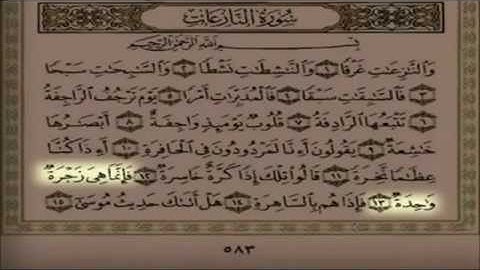 سُورَةُ النَّازِعَاتِ
بِسْمِ اللَّهِ الرَّحْمَٰنِ الرَّحِيمِ
وَالنَّٰزِعَٰتِ غَرْقًا ١ وَالنَّٰشِطَٰتِ نَشْطًا ٢ وَالسَّٰبِحَٰتِ سَبْحًا
٣ فَالسَّٰبِقَٰتِ سَبْقًا ٤ فَالْمُدَبِّرَٰتِ أَمْرًا ٥ يَوْمَ تَرْجُفُ الرَّاجِفَةُ
٦ تَتْبَعُهَا الرَّادِفَةُ ٧ قُلُوبٌ يَوْمَئِذٍ وَاجِفَةٌ ٨ أَبْصَٰرُهَا
خَٰشِعَةٌ ٩ يَقُولُونَ أَءِنَّا لَمَرْدُودُونَ فِي الْحَافِرَةِ ١٠ أَءِذَا كُنَّا
عِظَٰمًا نَّخِرَةً ١١ قَالُوا تِلْكَ إِذًا كَرَّةٌ خَاسِرَةٌ ١٢ فَإِنَّمَا هِيَ زَجْرَةٌ
وَٰحِدَةٌ ١٣ فَإِذَا هُم بِالسَّاهِرَةِ ١٤ هَلْ أَتَىٰكَ حَدِيثُ مُوسَىٰ ١٥
٥٨٣